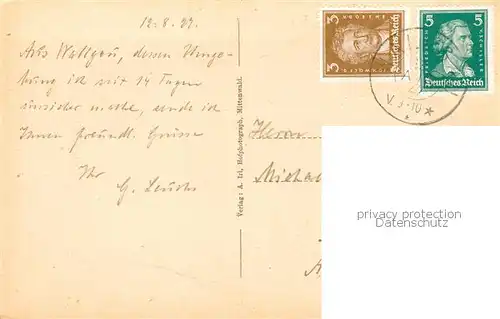 12.8.27.
Aus Wallgau, dessen Umge-
bung ich seit 14 Tagen
unsicher mache, sende ich
Ihnen freundl. Grüsse
Ihr
G.
Verlag: A. Irl, Hofphotograph, Mittenwald.
3
Deutsches Reich
5
FRIEDRICH V. SCHILLER
Deutsches Reich
V. 9-10 *
Herrn
Michae
privacy protection
Datenschutz